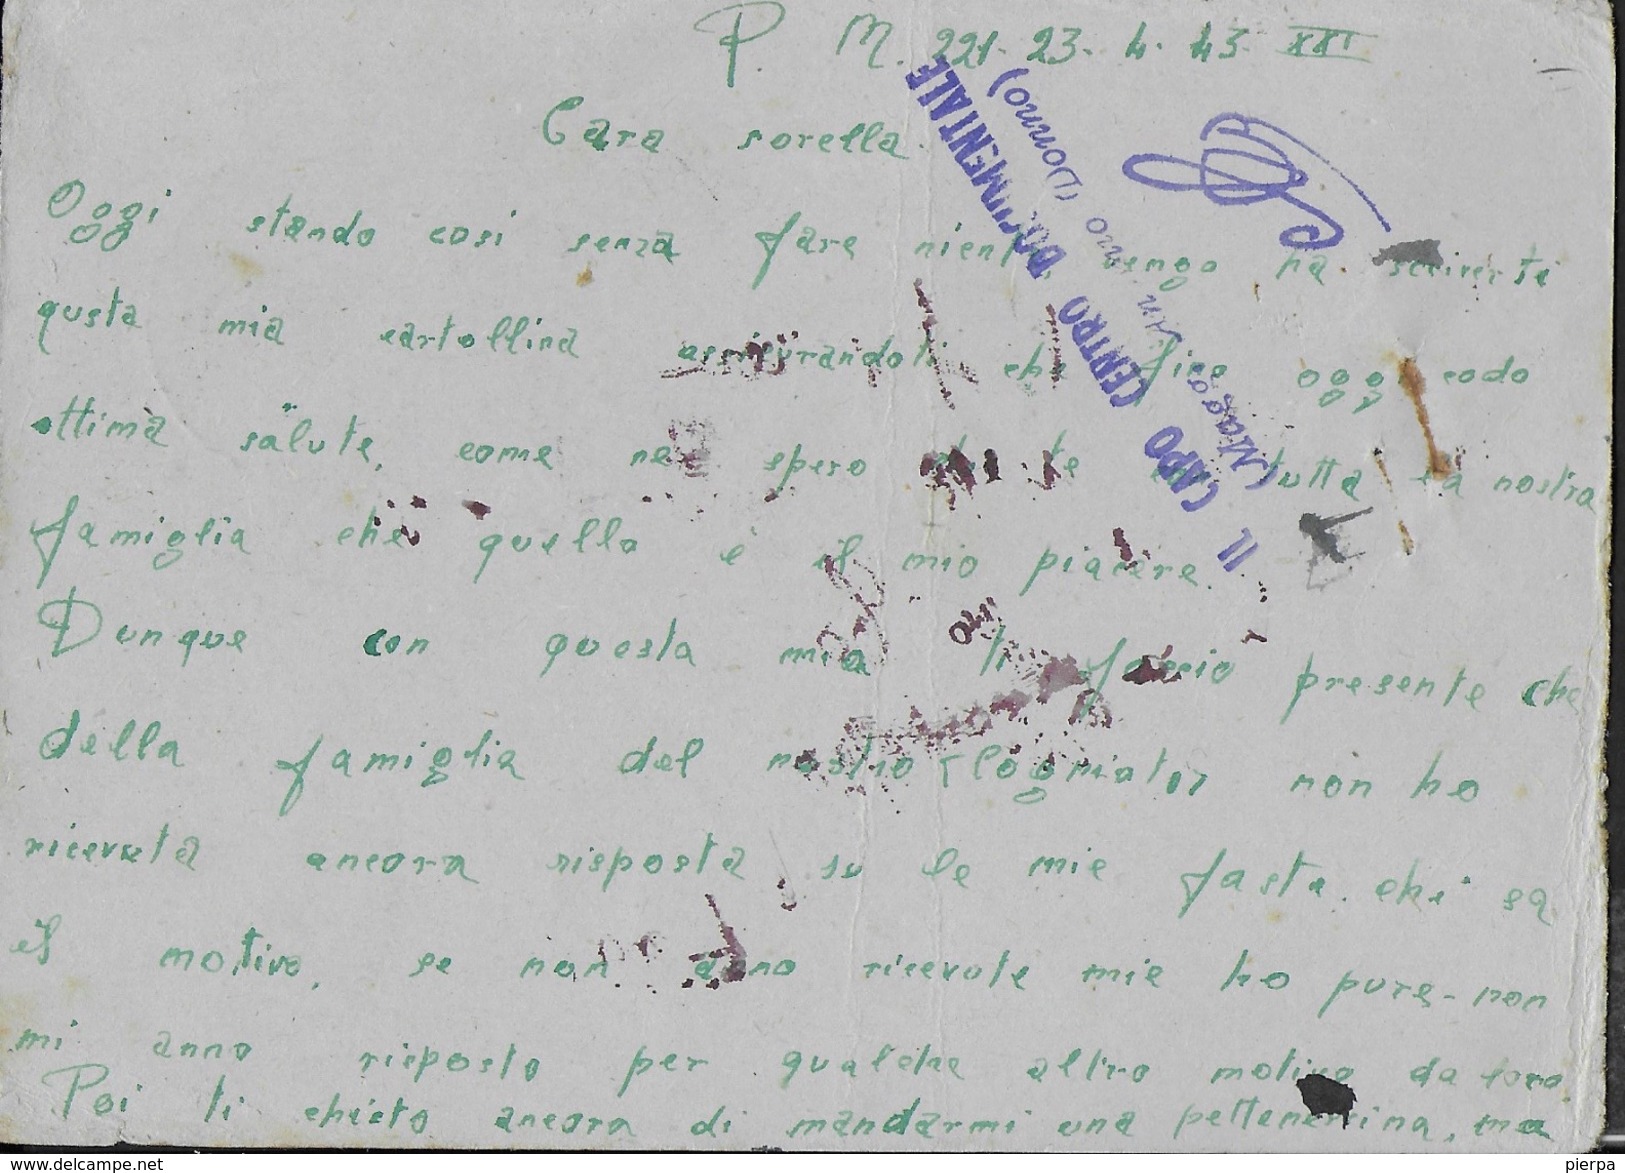 P. M. 221. 23. 4. 43. XXI
Cara sorella.
Oggi stando cosi senza fare niente vengo ha scriverti
qusta mia cartollina asicurandoti che fico oggi codo
ottima salute, come ne spero di te tutta la nostra
famiglia che quello è il mio piacere.
Dunque con questa mia ti faccio presente che
della famiglia del nostro non ho
ricevuta ancora risposta su le mie faste. chi sa
il motivo, se non anno ricevute mie ho pure-non
mi anno risposto per qualche altro motivo da loro
Poi ti chieto ancora di mandarmi una pettenernina, ma
IL CAPO CENTRO DOCUMENTALE
(Maggiore Donno)
pierpa